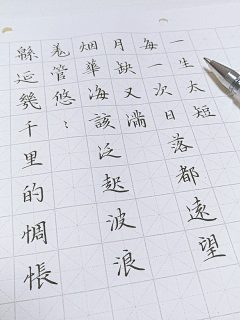 一生太短
每一次日落都遠望
月缺又滿
烟華海該泛起波浪
羌管悠⺀
緜延幾千里的惆悵